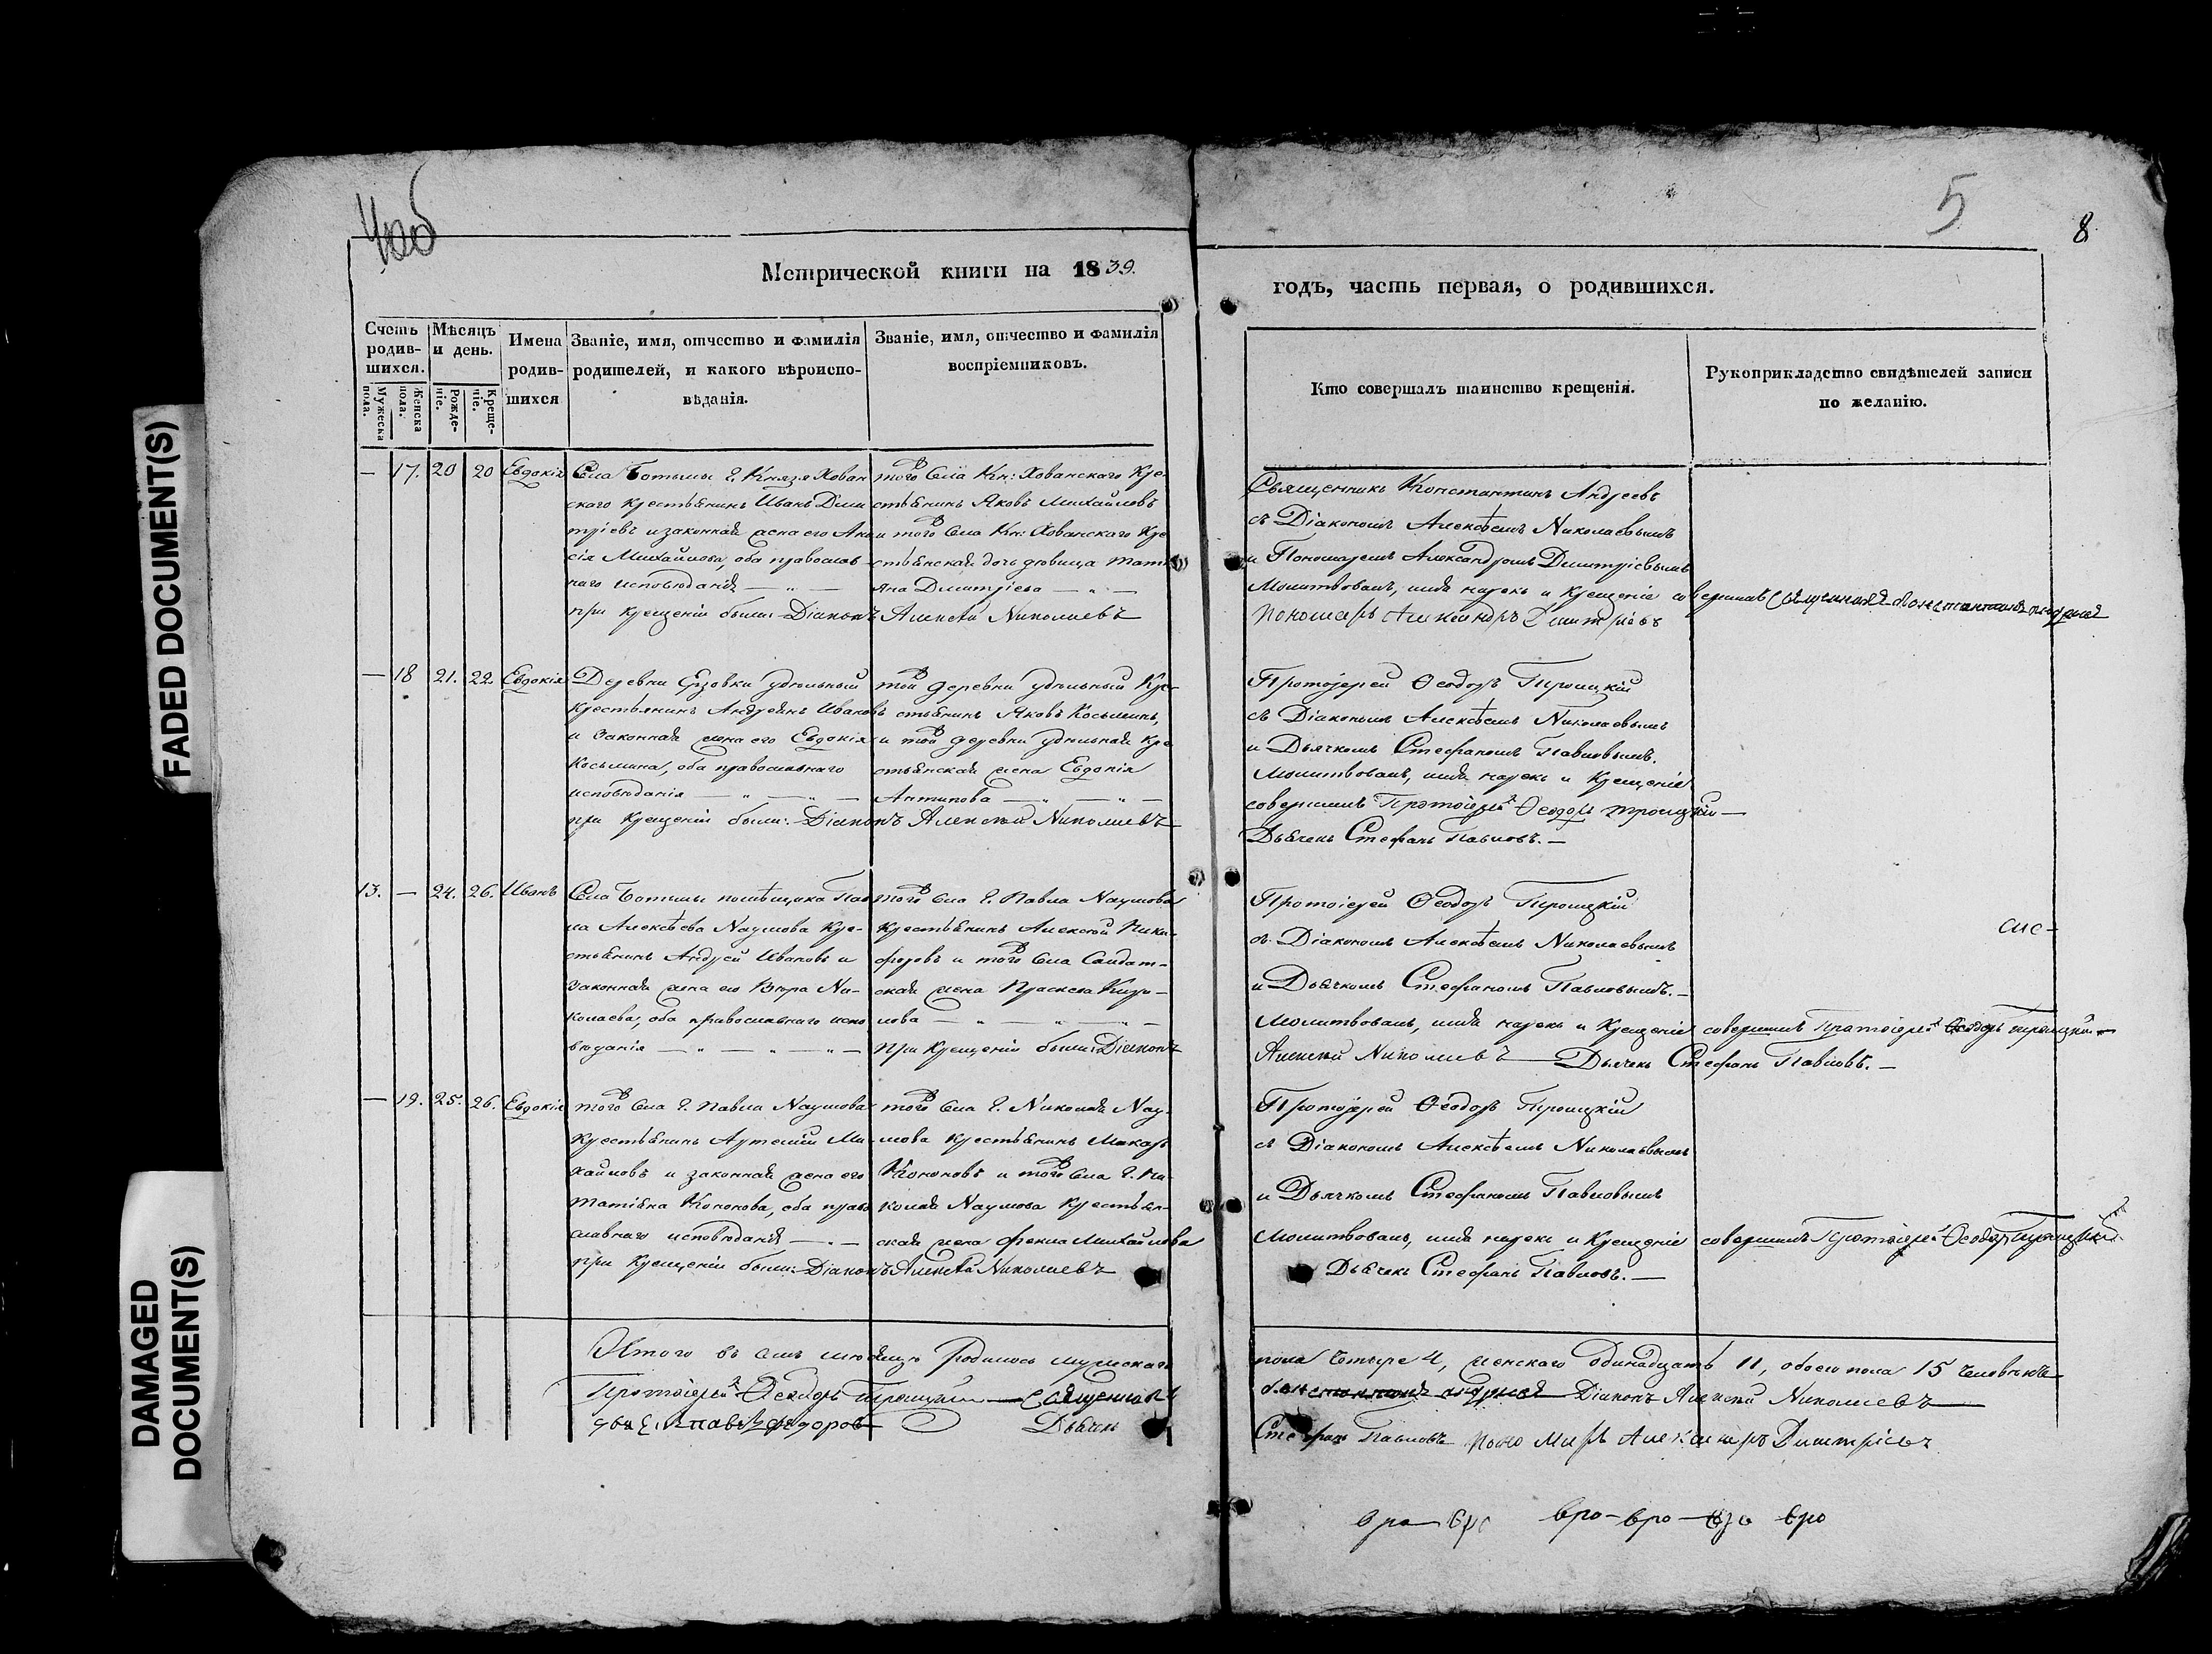 4об
5
8
Метрической книги на 1839.
годъ, часть первая, о родившихся.
Счетъ родившихся.
Мужеска пола.
Женска пола.
Мѣсяцъ и день.
Рожденіе.
Крещеніе.
Имена родившихся
Званіе, имя, отчество и фамилія родителей, и какого вѣроисповѣданія.
Званіе, имя, отчество и фамилія воспріемниковъ.
Кто совершалъ таинство крещенія.
Рукоприкладство свидѣтелей записи по желанію.
— 17. 20 20 Евдокія
Села Ботьмы Г. Князя Хован
скаго крестьянинъ Иванъ Дими
тріевъ и законная жена его
сія Михайлова, оба православ
наго исповѣданія — „ —
того села Кн: Хованскаго Кре
стьянинъ Яковъ Михайловъ
и того села Кн: Хованскаго Кре
стьянская дочь дѣвица Тати
яна Димитріева — „ —
при крещеніи были: Діаконъ Алексѣй Николаевъ
Священникъ Константинъ Андреевъ
съ Діакономъ Алексѣемъ Николаевымъ
и Пономаремъ Александромъ Димитріевымъ
Молитвовалъ, имя нарекъ и Крещеніе совершалъ Священникъ Константинъ Андреевъ
Пономарь Александръ Димитріевъ
— 18 21. 22. Евдокія
Деревни удѣльный
крестьянинъ Ивановъ
и законная жена его Евдокія
Косьмина, оба православнаго
исповѣданія — „ — „ —
той деревни удѣльный Кре
стьянинъ Яковъ Косьминъ,
и той деревни удѣльная кре
стьянская жена Евдокія
Антипова — „ — „ —
при крещеніи были: Діаконъ Алексѣй Николаевъ
Протоіерей Ѳеодоръ Троицкій
съ Діакономъ Алексѣемъ Николаевымъ
и Дьячкомъ Стефаномъ Павловымъ.
Молитвовалъ, имя нарекъ и Крещеніе
совершилъ Протоіерей Ѳеодоръ Троицкій —
Дьячекъ Стефанъ Павловъ. —
13. — 24. 26. Иванъ
Села Ботьмы помѣщика Пав
ла Алексѣева Наумова Кре-
стьянинъ Андрей Ивановъ и
законная жена его Вѣра Ни-
колаева, оба православнаго испо
вѣданія — „ — „ — „ —
того села Г. Павла Наумова
крестьянинъ Алексѣй Ники-
форовъ и того села Салдат-
ская жена Кири-
лова — „ — „ — „ —
При крещеніи были: Діаконъ
Алексѣй Николаевъ
Протоіерей Ѳеодоръ Троицкій
съ Діакономъ Алексѣемъ Николаевымъ
и Дьячкомъ Стефаномъ Павловымъ. —
Молитвовалъ, имя нарекъ и Крещеніе совершилъ Протоіерей Ѳеодоръ Троицкій —
Дьячекъ Стефанъ Павловъ. —
— 19. 25. 26. Евдокія
того села Г. Павла Наумова
крестьянинъ Артемій Ми-
хайловъ и законная жена его
Кононова, оба право
славнаго исповѣданія — „ —
того села Г. Николая Нау-
мова крестьянинъ Макаръ
Кононовъ и того села Г. Ни-
колая Наумова крестьян-
ская жена Фекла Михайлова
при крещеніи были: Діаконъ Алексѣй Николаевъ
Протоіерей Ѳеодоръ Троицкій
съ Діакономъ Алексѣемъ Николаевымъ
и Дьячкомъ Стефаномъ Павловымъ
Молитвовалъ, имя нарекъ и Крещеніе совершилъ Протоіерей Ѳеодоръ Троицкій
Дьячекъ Стефанъ Павловъ. —
Итого въ семъ мѣсяцѣ родилось мужескаго пола четыре 4, женскаго одинадцать 11, обоего пола 15 человѣкъ
Протоіерей Ѳеодоръ Троицкій — Священникъ Константинъ Андреевъ Діаконъ Алексѣй Николаевъ
Федоров Дьячекъ Стефанъ Павловъ Пономарь Александръ Димитріевъ
вро — вро вро — вро — вро вро
FADED DOCUMENT(S)
DAMAGED DOCUMENT(S)